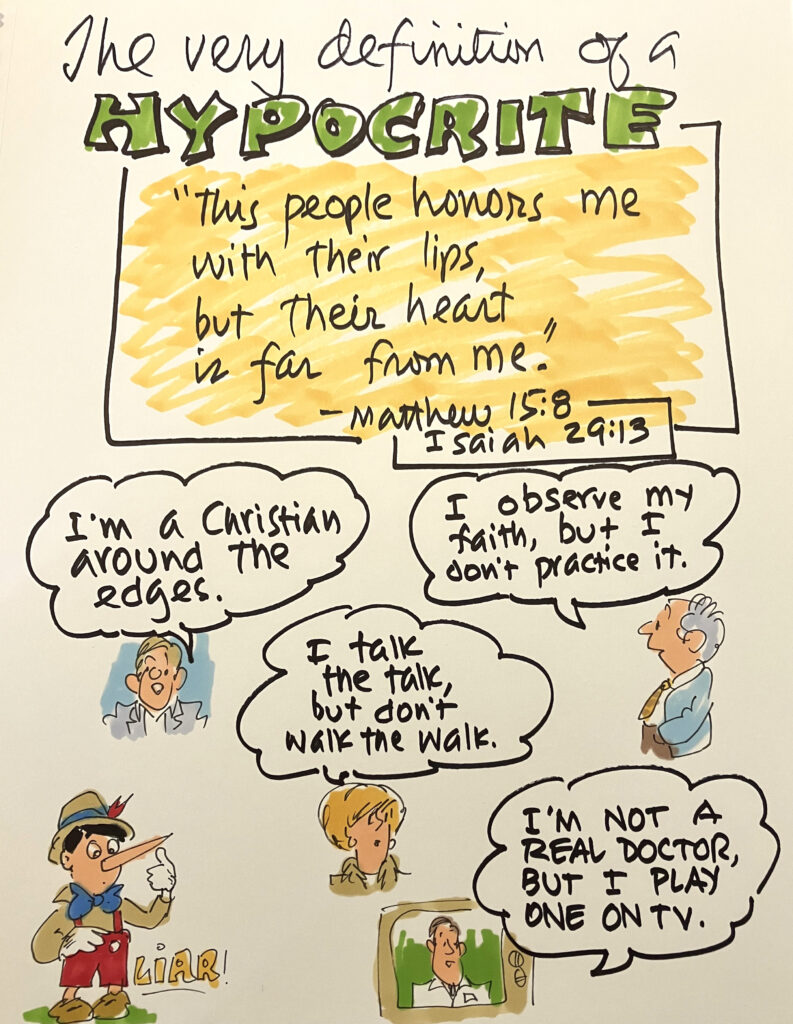 The very definition of a
HYPOCRITE
"This people honors me
with their lips,
but their heart
is far from me."
- Matthew 15:8
Isaiah 29:13
I'm a Christian
around the
edges.
I observe my
faith, but I
don't practice it.
I talk
the talk,
but don't
walk the walk.
I'M NOT A
REAL DOCTOR,
BUT I PLAY
ONE ON TV.
LIAR!